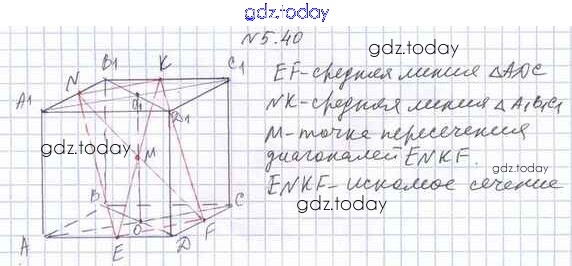 gdz.today
N5.40
B1 K C1
N
A1 O1 D1
gdz.today
EF-средняя линия △ADC
NK-средняя линия △A1B1C1
M-точка пересечения
диагоналей ENKF.
ENKF-искомое сечение
gdz.today
gdz.today
M
B C
O F
A E D